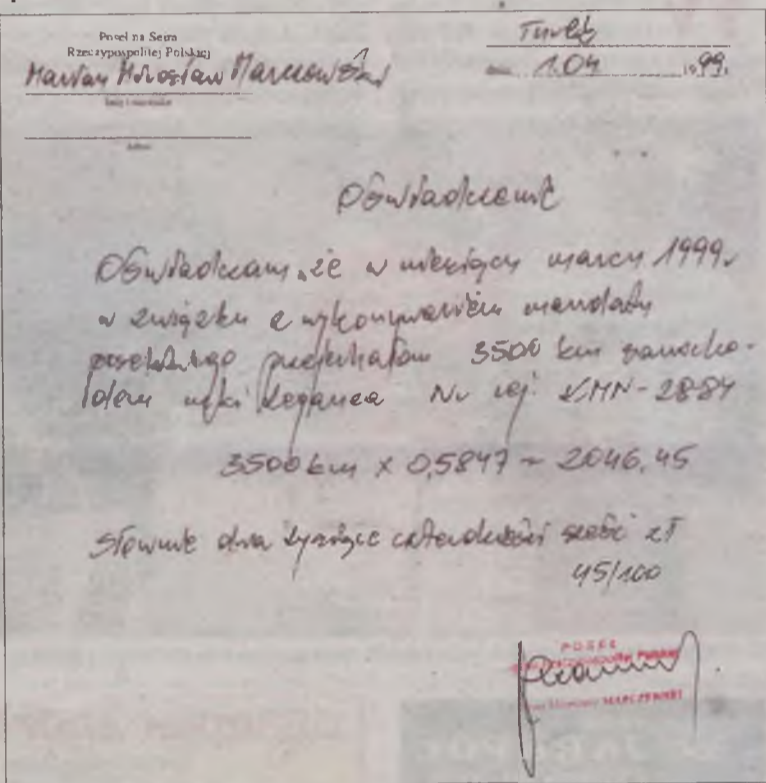 Poseł na Sejm
Rzeczypospolitej Polskiej
Turek
Marian Mirosław Marczewski
1.04 1999.
Imię i nazwisko
Adres
Oświadczenie
Oświadczam, że w miesiącu marcu 1999r
w związku z wykonywaniem mandatu
poselskiego przejechałem 3500 km samocho-
dem marki Leganza Nr rej. KMN-2884
3500 km x 0,5847 = 2046,45
Słownie dwa tysiące czterdzieści sześć zł
45/100
POSEŁ
Rzeczypospolitej Polskiej
Mirosław MARCZEWSKI